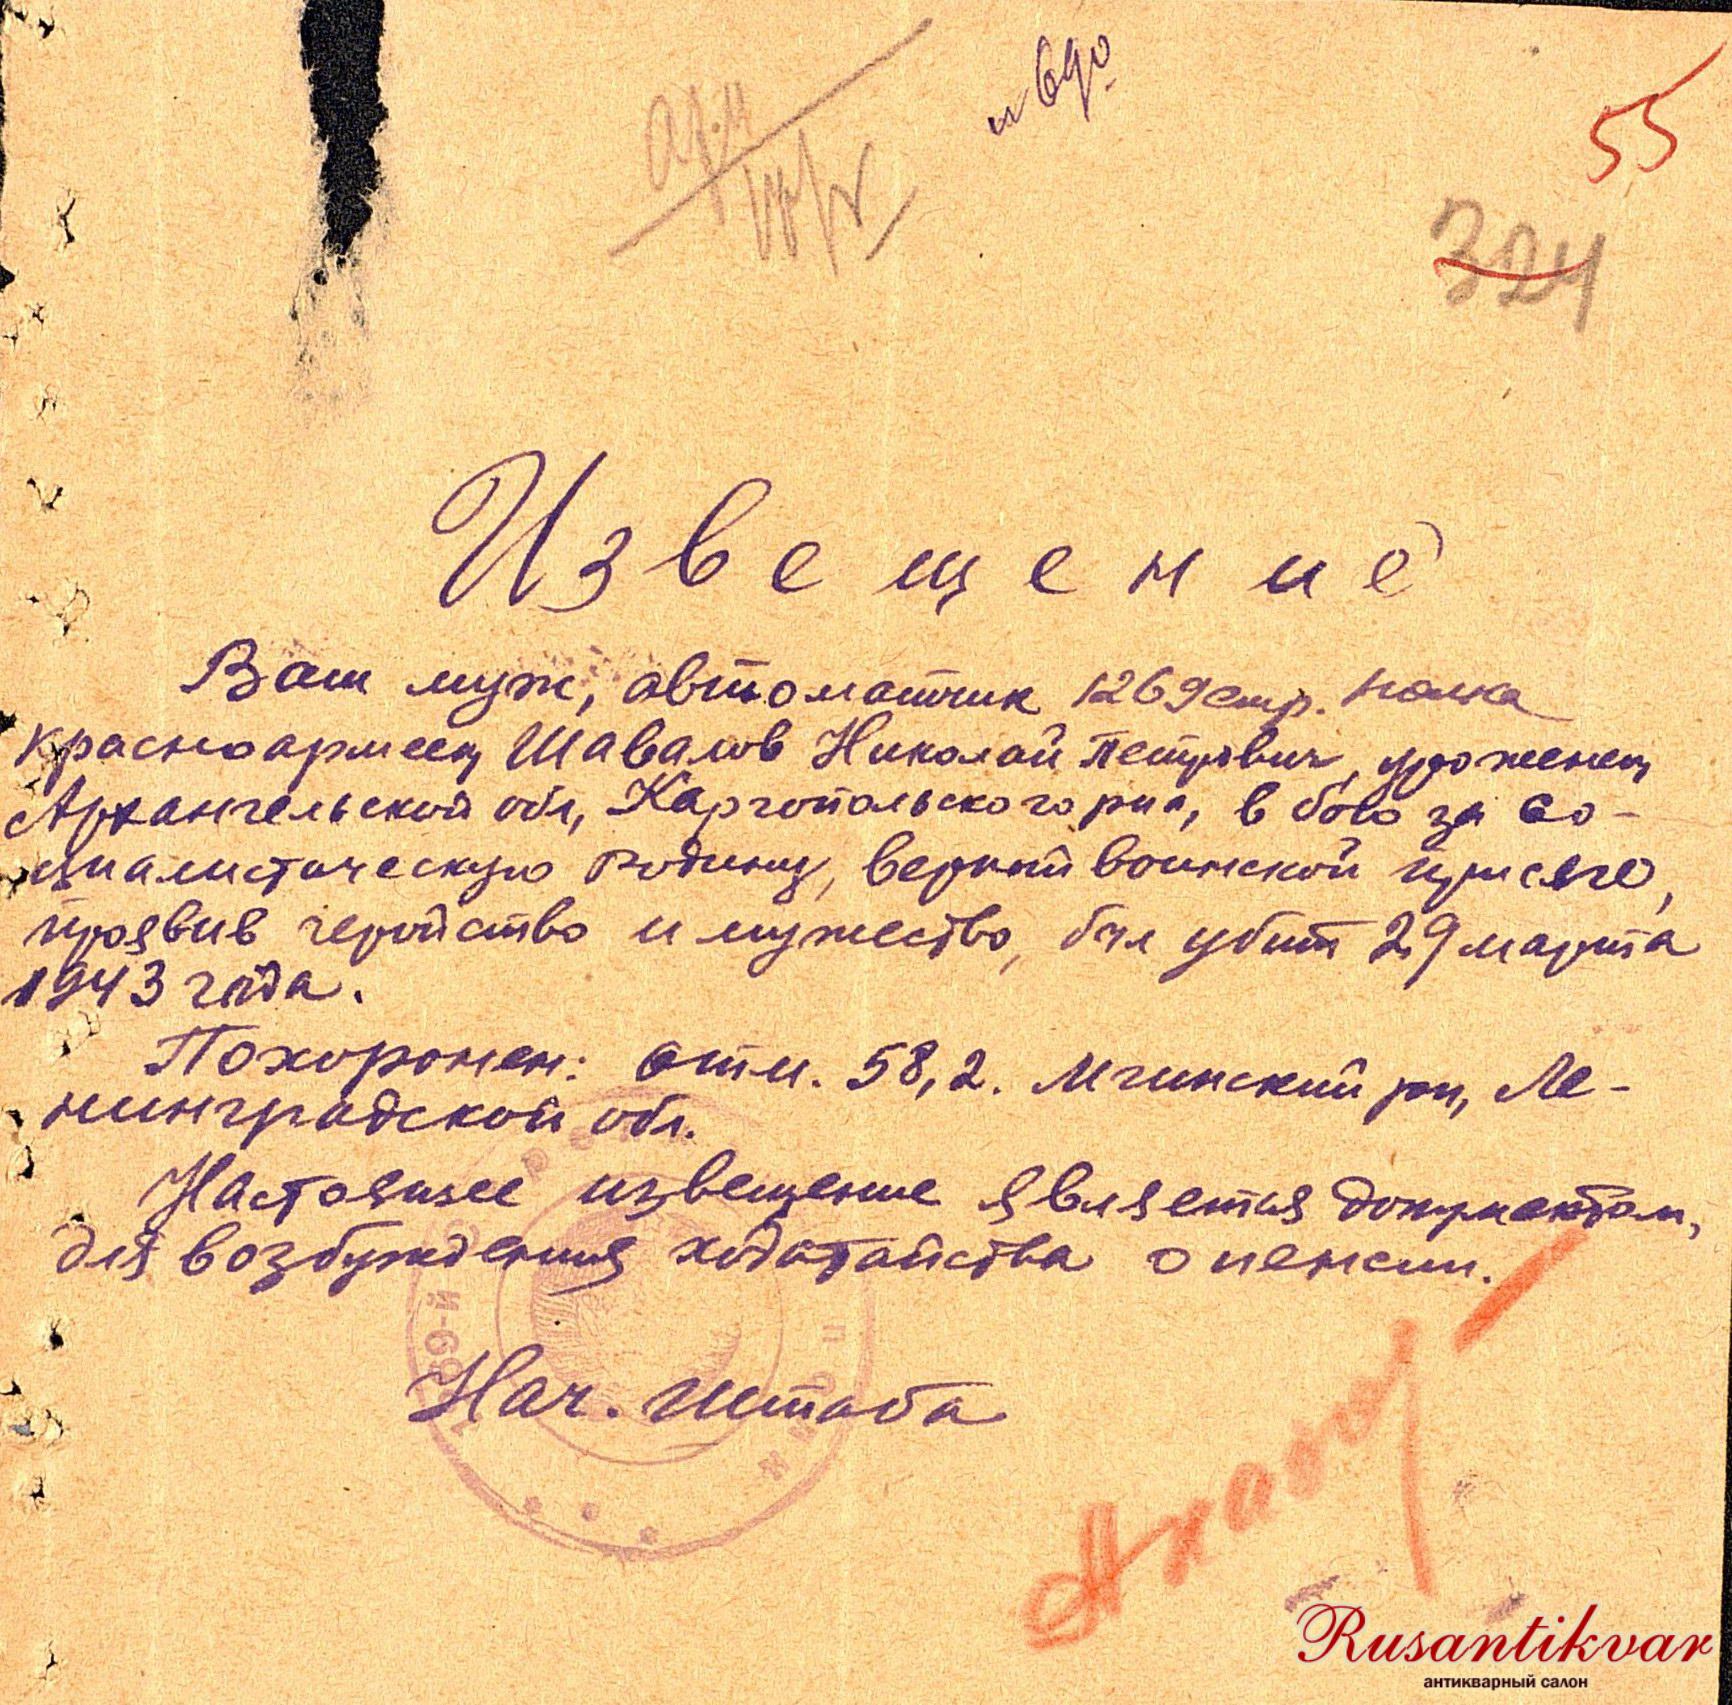 55
324
Извещение
Ваш муж, автоматчик 1269 стр. полка
красноармеец Шавалов Николай Петрович, уроженец
Архангельской обл, Каргопольского р-на, в бою за со-
циалистическую Родину, верный воинской присяге,
проявив геройство и мужество, был убит 29 марта
1943 года.
Похоронен: отм. 58,2. Мгинский р-н, Ле-
нинградской обл.
Настоящее извещение является документом,
для возбуждения ходатайства о пенсии.
Нач. штаба
Rusantikvar
антикварный салон